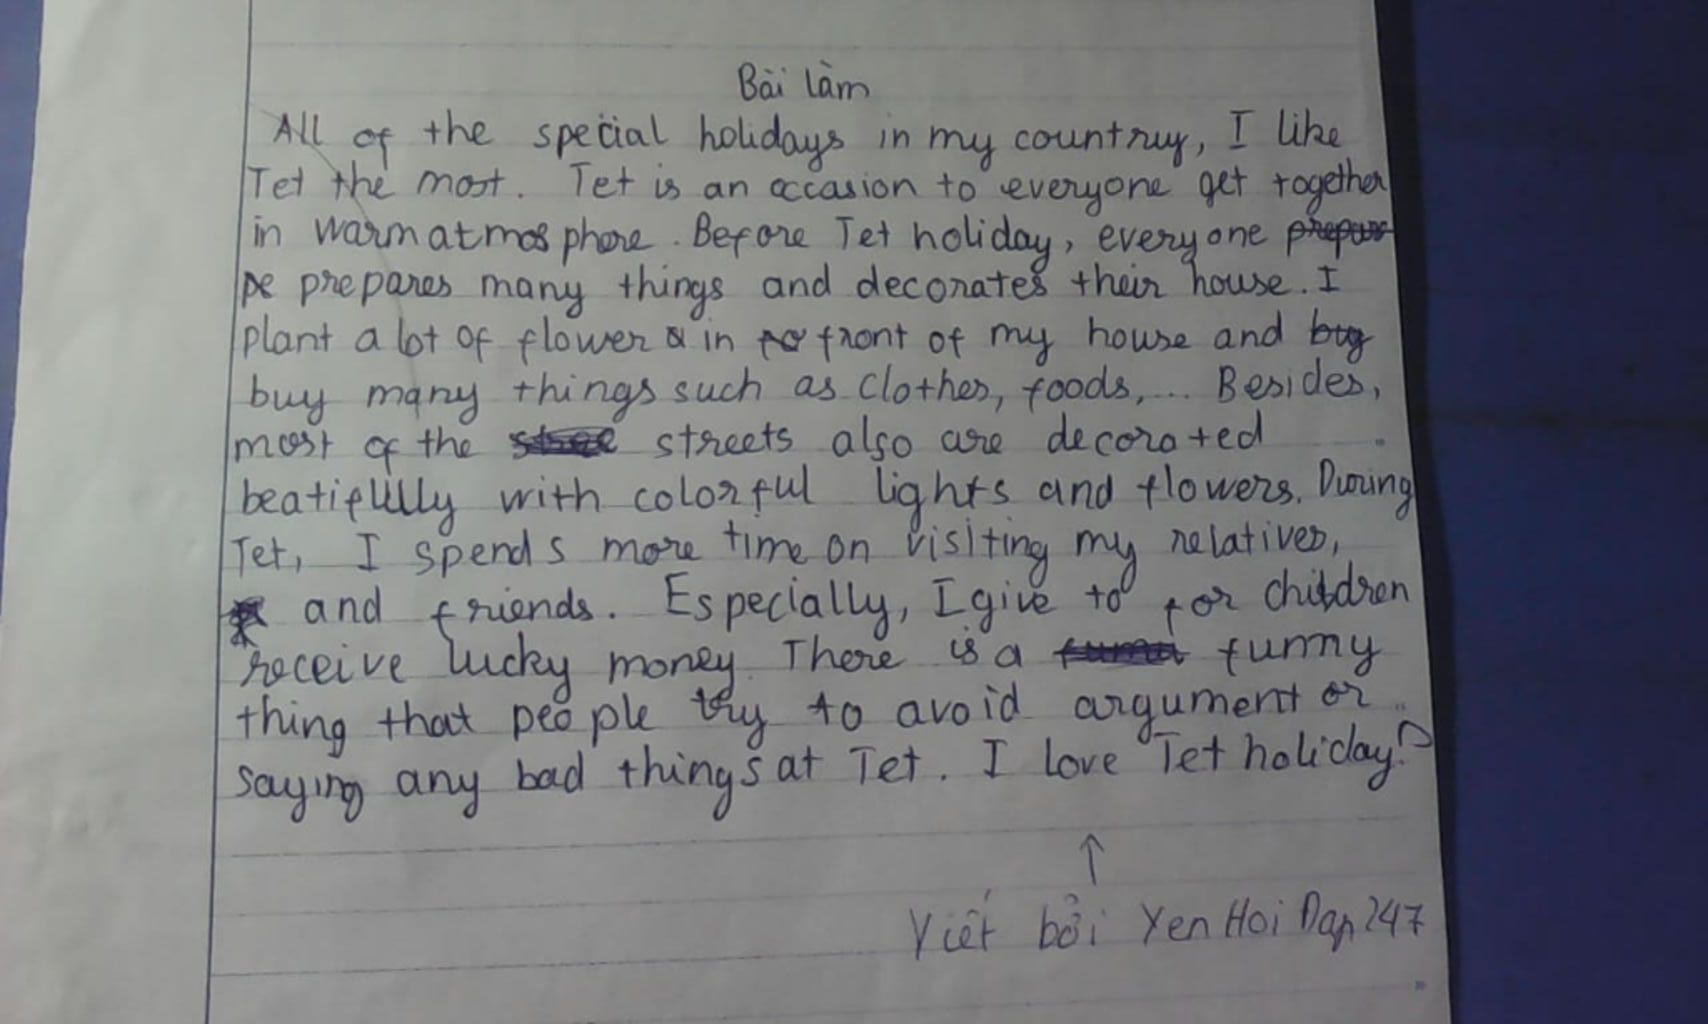 Bài làm
All of the special holidays in my country, I like
Tet the most. Tet is an occasion to everyone get together
in warm atmosphore. Before Tet holiday, everyone prepare
pe prepares many things and decorates their house. I
plant a lot of flower & in fo front of my house and buy
buy many things such as clothes, foods,... Besides,
most of the stree streets also are decorated
beatifully with colorful lights and flowers. During
Tet, I spends more time on visiting my relatives,
and friends. Especially, I give to for children
receive lucky money. There is a funny
thing that people try to avoid argument or
saying any bad things at Tet. I love Tet holiday!
Viết bởi Yen Hoi Dap 247